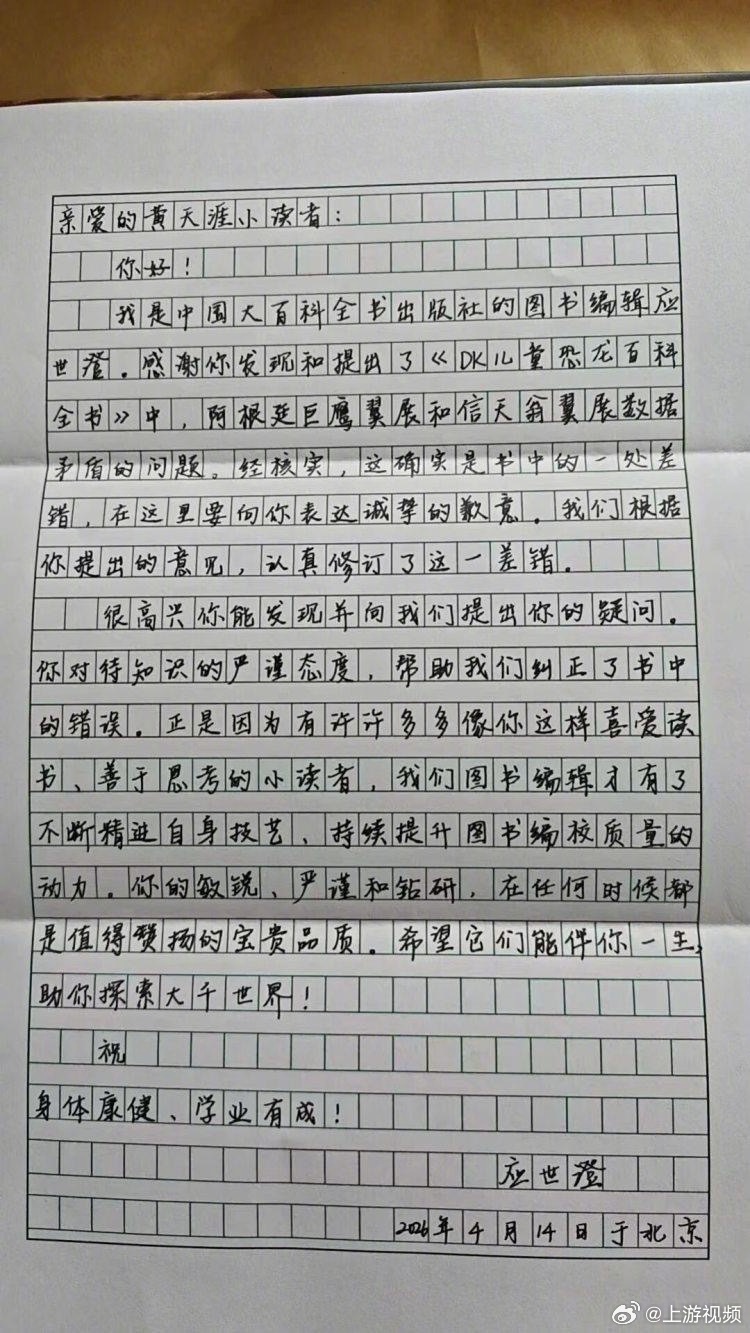 亲爱的黄天涯小读者：
你好！
我是中国大百科全书出版社的图书编辑应
世澄。感谢你发现和提出了《DK儿童恐龙百科
全书》中，阿根廷巨鹰翼展和信天翁翼展数据
矛盾的问题。经核实，这确实是书中的一处差
错，在这里要向你表达诚挚的歉意。我们根据
你提出的意见，认真修订了这一差错。
很高兴你能发现并向我们提出你的疑问。
你对待知识的严谨态度，帮助我们纠正了书中
的错误。正是因为有许许多多像你这样喜爱读
书、善于思考的小读者，我们图书编辑才有了
不断精进自身技艺、持续提升图书编校质量的
动力。你的敏锐、严谨和钻研，在任何时候都
是值得赞扬的宝贵品质。希望它们能伴你一生，
助你探索大千世界！
祝
身体康健、学业有成！
应世澄
2026年4月14日于北京
@上游视频